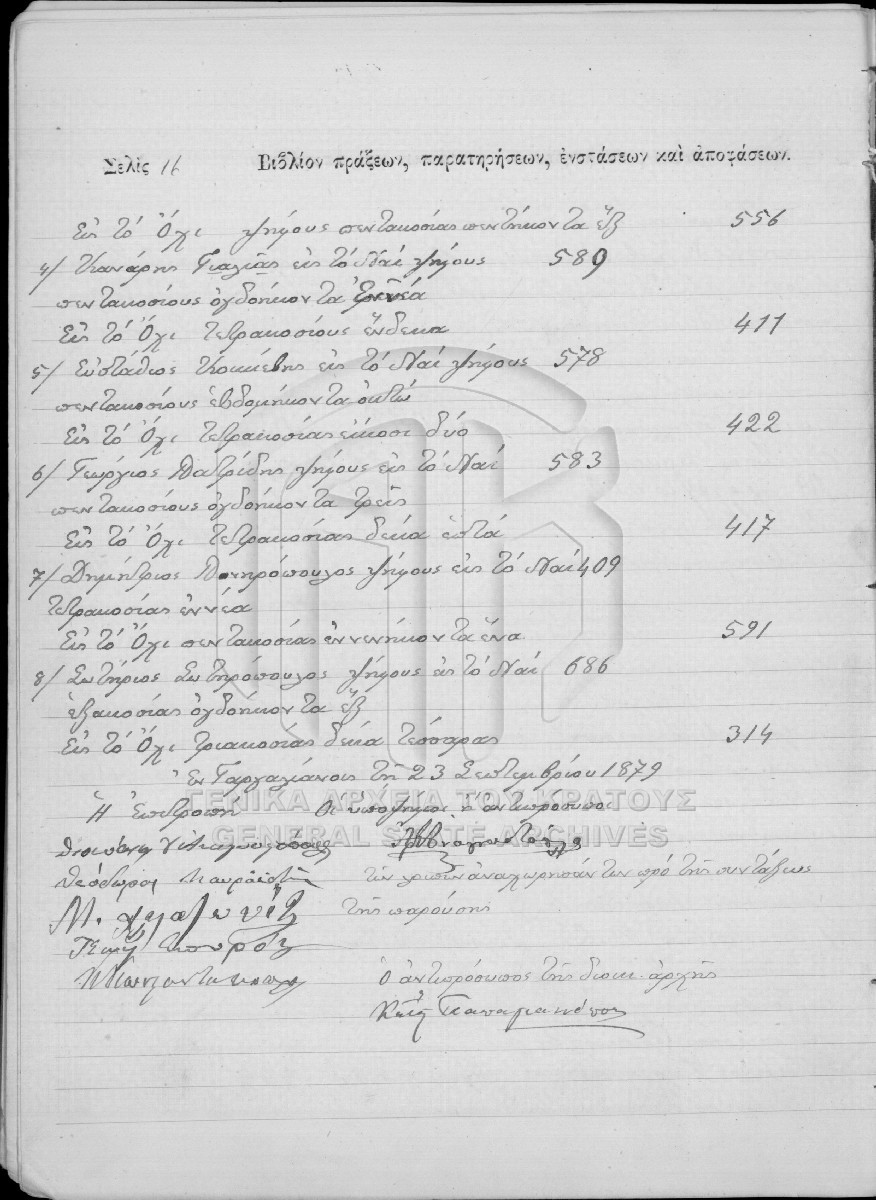 Σελὶς 16 Βιβλίον πράξεων, παρατηρήσεων, ἐνστάσεων καὶ ἀποφάσεων.
Εἰς τὸ Ὄχι ψήφους πεντακοσίας πεντήκοντα ἕξ 556
4/ Κανάρης Γιαλιᾶς εἰς τὸ Ναὶ ψήφους 589
πεντακοσίους ὀγδοήκοντα ἐννέα
Εἰς τὸ Ὄχι τετρακοσίους ἕνδεκα 411
5/ Εὐστάθιος εἰς τὸ Ναὶ ψήφους 578
πεντακοσίους ἑβδομήκοντα ὀκτώ
Εἰς τὸ Ὄχι τετρακοσίας εἴκοσι δύο 422
6/ Γεώργιος Πατρίδης ψήφους εἰς τὸ Ναὶ 583
πεντακοσίους ὀγδοήκοντα τρεῖς
Εἰς τὸ Ὄχι τετρακοσίας δέκα ἑπτά 417
7/ Δημήτριος ψήφους εἰς τὸ Ναὶ 409
τετρακοσίας ἐννέα
Εἰς τὸ Ὄχι πεντακοσίας ἐννενήκοντα ἕνα 591
8/ Σωτήριος Σωτηρόπουλος ψήφους εἰς τὸ Ναὶ 686
ἑξακοσίας ὀγδοήκοντα ἕξ
Εἰς τὸ Ὄχι τριακοσίας δέκα τέσσαρας 314
Ἐν Γαργαλιάνοις τῇ 23 Σεπτεμβρίου 1879
Ἡ Ἐπιτροπὴ Οἱ ὑποψήφιοι ἢ ἀντιπρόσωποι
ΓΕΝΙΚΑ ΑΡΧΕΙΑ ΤΟΥ ΚΡΑΤΟΥΣ
GENERAL STATE ARCHIVES
Θεόδωρος τῶν λοιπῶν ἀναχωρησάντων πρὸ τῆς συντάξεως
τῆς παρούσης
Ὁ ἀντιπρόσωπος τῆς διοικ. ἀρχῆς
Παπαγιανόπουλος